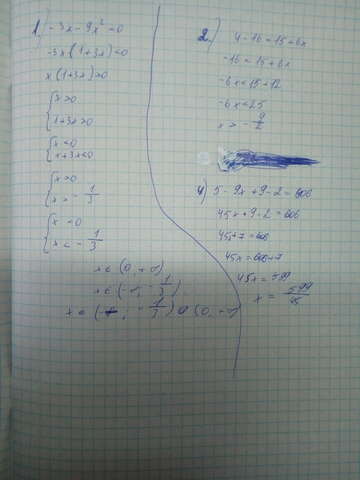 1) -3x - 9x² < 0
-3x (1+3x) < 0
x (1+3x) > 0
{ x > 0
1+3x > 0
{ x < 0
x+3x < 0
{ x > 0
x > - 1/3
{ x < 0
x < - 1/3
x ∈ (0, +∞)
x ∈ (-∞, - 1/3)
x ∈ (-∞, - 1/3) ∪ (0, +∞)
2)
-16 = 15 + 6x
-6x = 15 + 12
-6x = 25
x > - 9/2
4) 5 - 9x + 9 - 2 = 606
45x + 9 - 2 = 606
45x + 7 = 606
45x = 606 + 7
45x = 599
x = 599/45